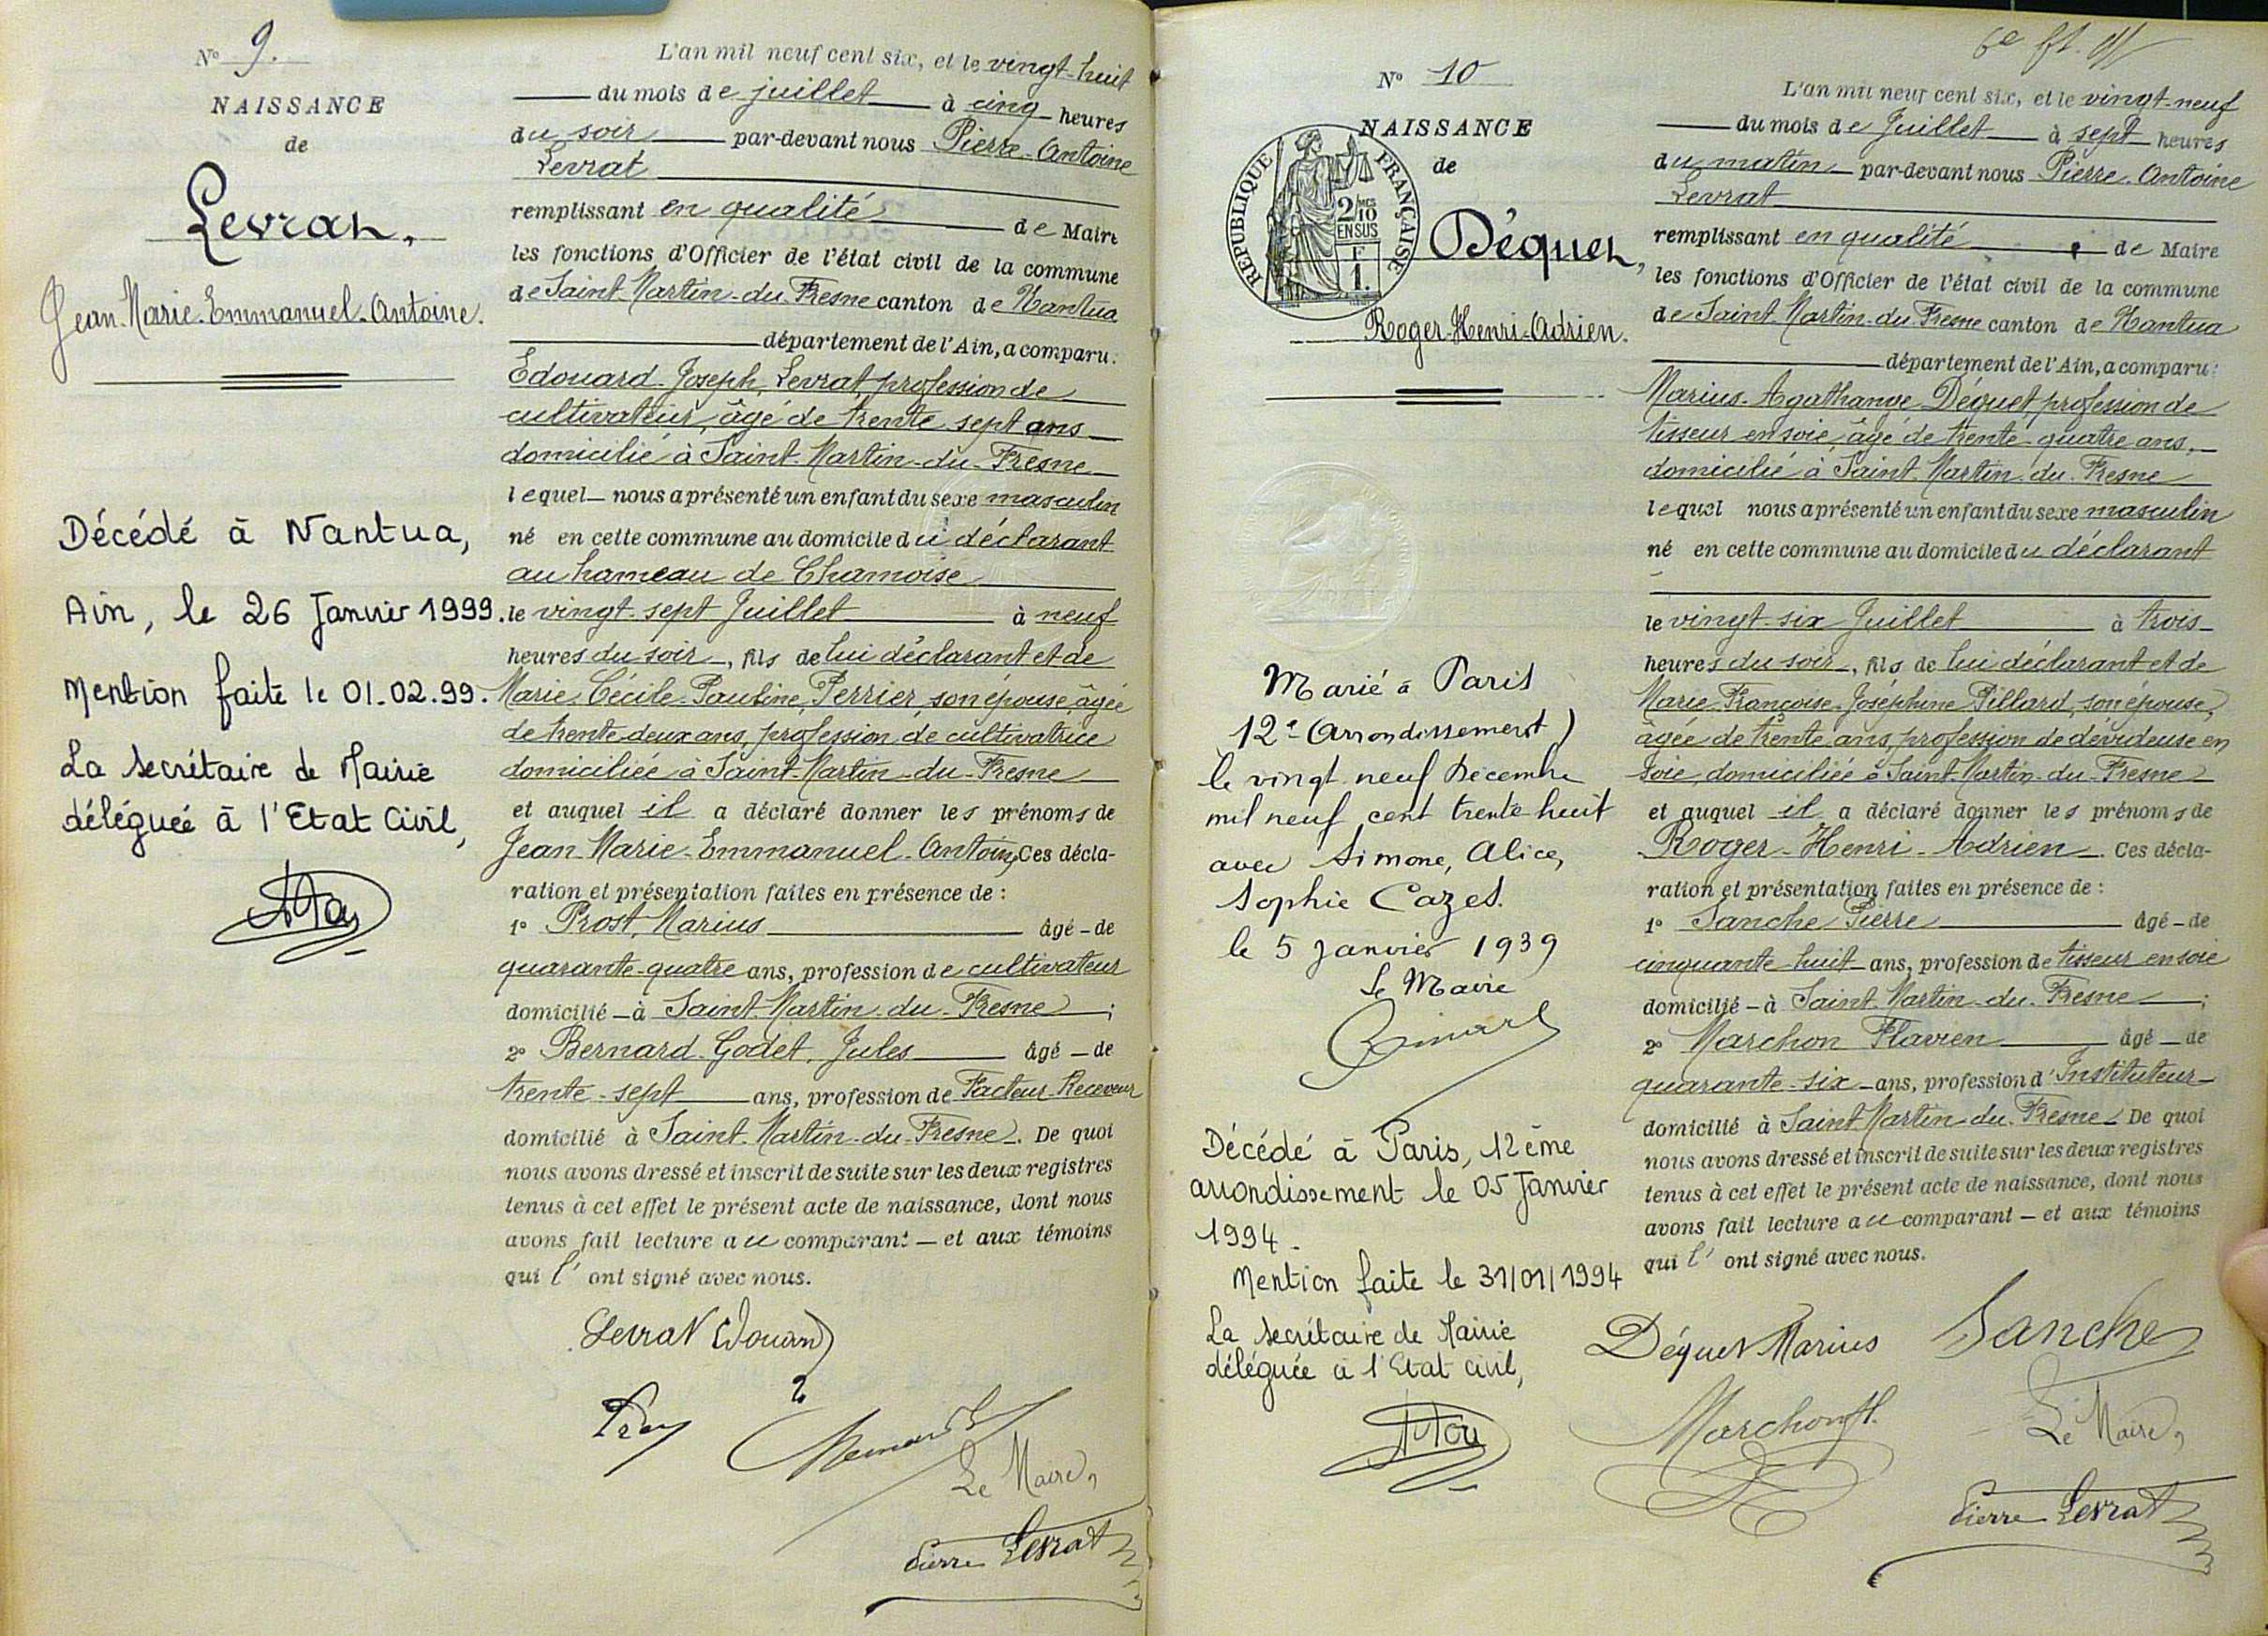 N° 9.
NAISSANCE
de
Levrat,
Jean-Marie-Emmanuel-Antoine.
Décédé à Nantua,
Ain, le 26 Janvier 1999.
Mention faite le 01.02.99.
La secrétaire de Mairie
déléguée à l'Etat Civil,
L'an mil neuf cent six, et le vingt-huit
du mois de juillet à cinq heures
du soir par-devant nous Pierre-Antoine
Levrat
remplissant en qualité de Maire
les fonctions d'Officier de l'état civil de la commune
de Saint-Martin-du-Fresne canton de Nantua
département de l'Ain, a comparu:
Edouard-Joseph, Levrat, profession de
cultivateur, âgé de trente sept ans
domicilié à Saint-Martin-du-Fresne
lequel nous a présenté un enfant du sexe masculin
né en cette commune au domicile du déclarant
au hameau de Chamoise
le vingt-sept Juillet à neuf
heures du soir, fils de lui déclarant et de
Marie-Cécile-Pauline, Perrier, son épouse, âgée
de trente deux ans, profession de cultivatrice
domiciliée à Saint-Martin-du-Fresne
et auquel il a déclaré donner les prénoms de
Jean-Marie-Emmanuel-Antoine Ces décla-
ration et présentation faites en présence de :
1° Prost, Marius âgé de
quarante-quatre ans, profession de cultivateur
domicilié à Saint-Martin-du-Fresne ;
2° Bernard-Godet, Jules âgé de
trente-sept ans, profession de Facteur Receveur
domicilié à Saint-Martin-du-Fresne. De quoi
nous avons dressé et inscrit de suite sur les deux registres
tenus à cet effet le présent acte de naissance, dont nous
avons fait lecture au comparant et aux témoins
qui l' ont signé avec nous.
Levrat Edouard
Le Maire,
Pierre Levrat
N° 10
NAISSANCE
de
RÉPUBLIQUE FRANÇAISE
2/10 MES
EN SUS
F
1.
Déquet,
Roger-Henri-Adrien.
Marié à Paris
12e (Arrondissement)
le vingt neuf Décembre
mil neuf cent trente huit
avec Simone, Alice,
Sophie Cazes.
le 5 Janvier 1939
Le Maire
Décédé à Paris, 12ème
arrondissement le 05 Janvier
1994.
Mention faite le 31/01/1994
La secrétaire de Mairie
déléguée à l'Etat Civil,
L'an mil neuf cent six, et le vingt-neuf
du mois de Juillet à sept heures
du matin par-devant nous Pierre-Antoine
Levrat
remplissant en qualité de Maire
les fonctions d'Officier de l'état civil de la commune
de Saint-Martin-du-Fresne canton de Nantua
département de l'Ain, a comparu:
Marius-Agathange Déquet, profession de
tisseur en soie, âgé de trente-quatre ans,
domicilié à Saint-Martin-du-Fresne
lequel nous a présenté un enfant du sexe masculin
né en cette commune au domicile du déclarant
le vingt-six Juillet à trois
heures du soir, fils de lui déclarant et de
Marie-Françoise-Joséphine Pillard, son épouse,
âgée de trente ans, profession de dévideuse en
soie, domiciliée à Saint-Martin-du-Fresne
et auquel il a déclaré donner les prénoms de
Roger-Henri-Adrien. Ces décla-
ration et présentation faites en présence de :
1° Sanche Pierre âgé de
cinquante-huit ans, profession de tisseur en soie
domicilié à Saint-Martin-du-Fresne ;
2° Marchon Flavien âgé de
quarante-six ans, profession d'Instituteur
domicilié à Saint-Martin-du-Fresne. De quoi
nous avons dressé et inscrit de suite sur les deux registres
tenus à cet effet le présent acte de naissance, dont nous
avons fait lecture au comparant et aux témoins
qui l' ont signé avec nous.
Déquet Marius Sanche
Marchon fl.
Le Maire,
Pierre Levrat